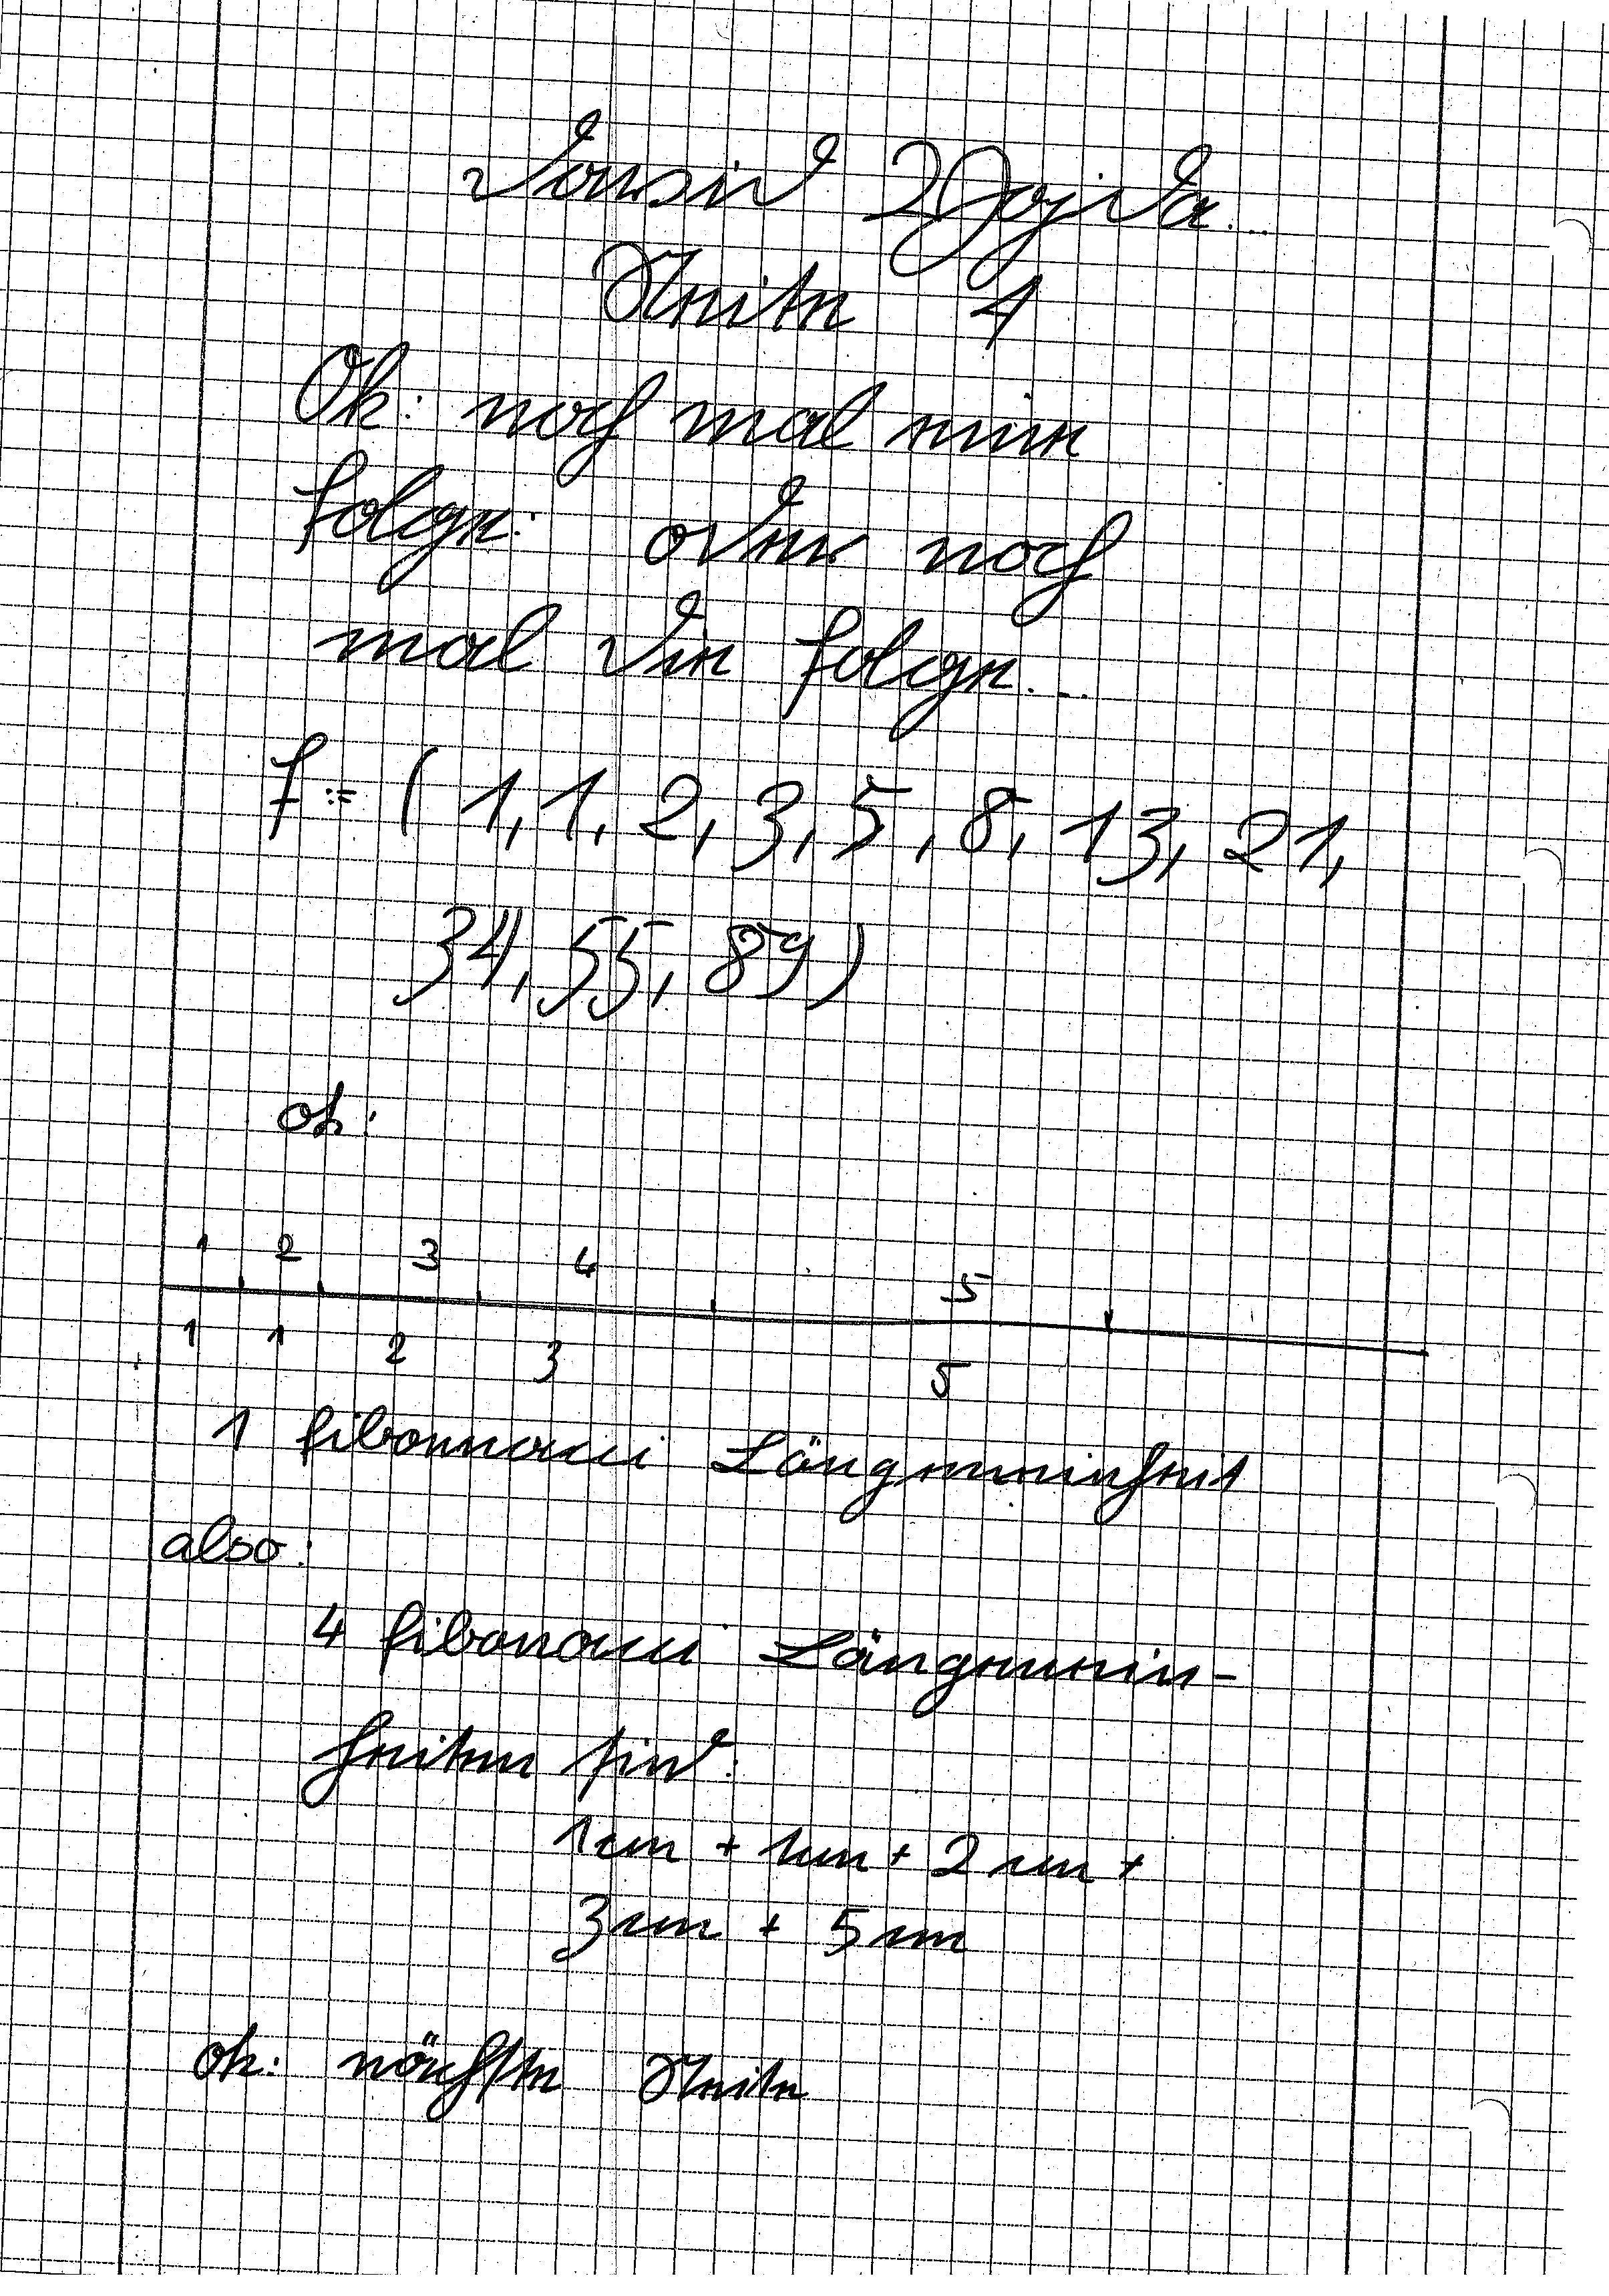 David Vajda...
Seite 4
Ok: noch mal eine
Folge: oder noch
mal die Folge...
f := ( 1, 1, 2, 3, 5, 8, 13, 21,
34, 55, 89)
ok:
1 2 3 4 5
1 1 2 3 5
1 fibonnacci Längeneinheit
also:
4 fibonacci Längenein-
heiten sind:
1cm + 1cm + 2cm +
3cm + 5cm
ok: nächste Seite